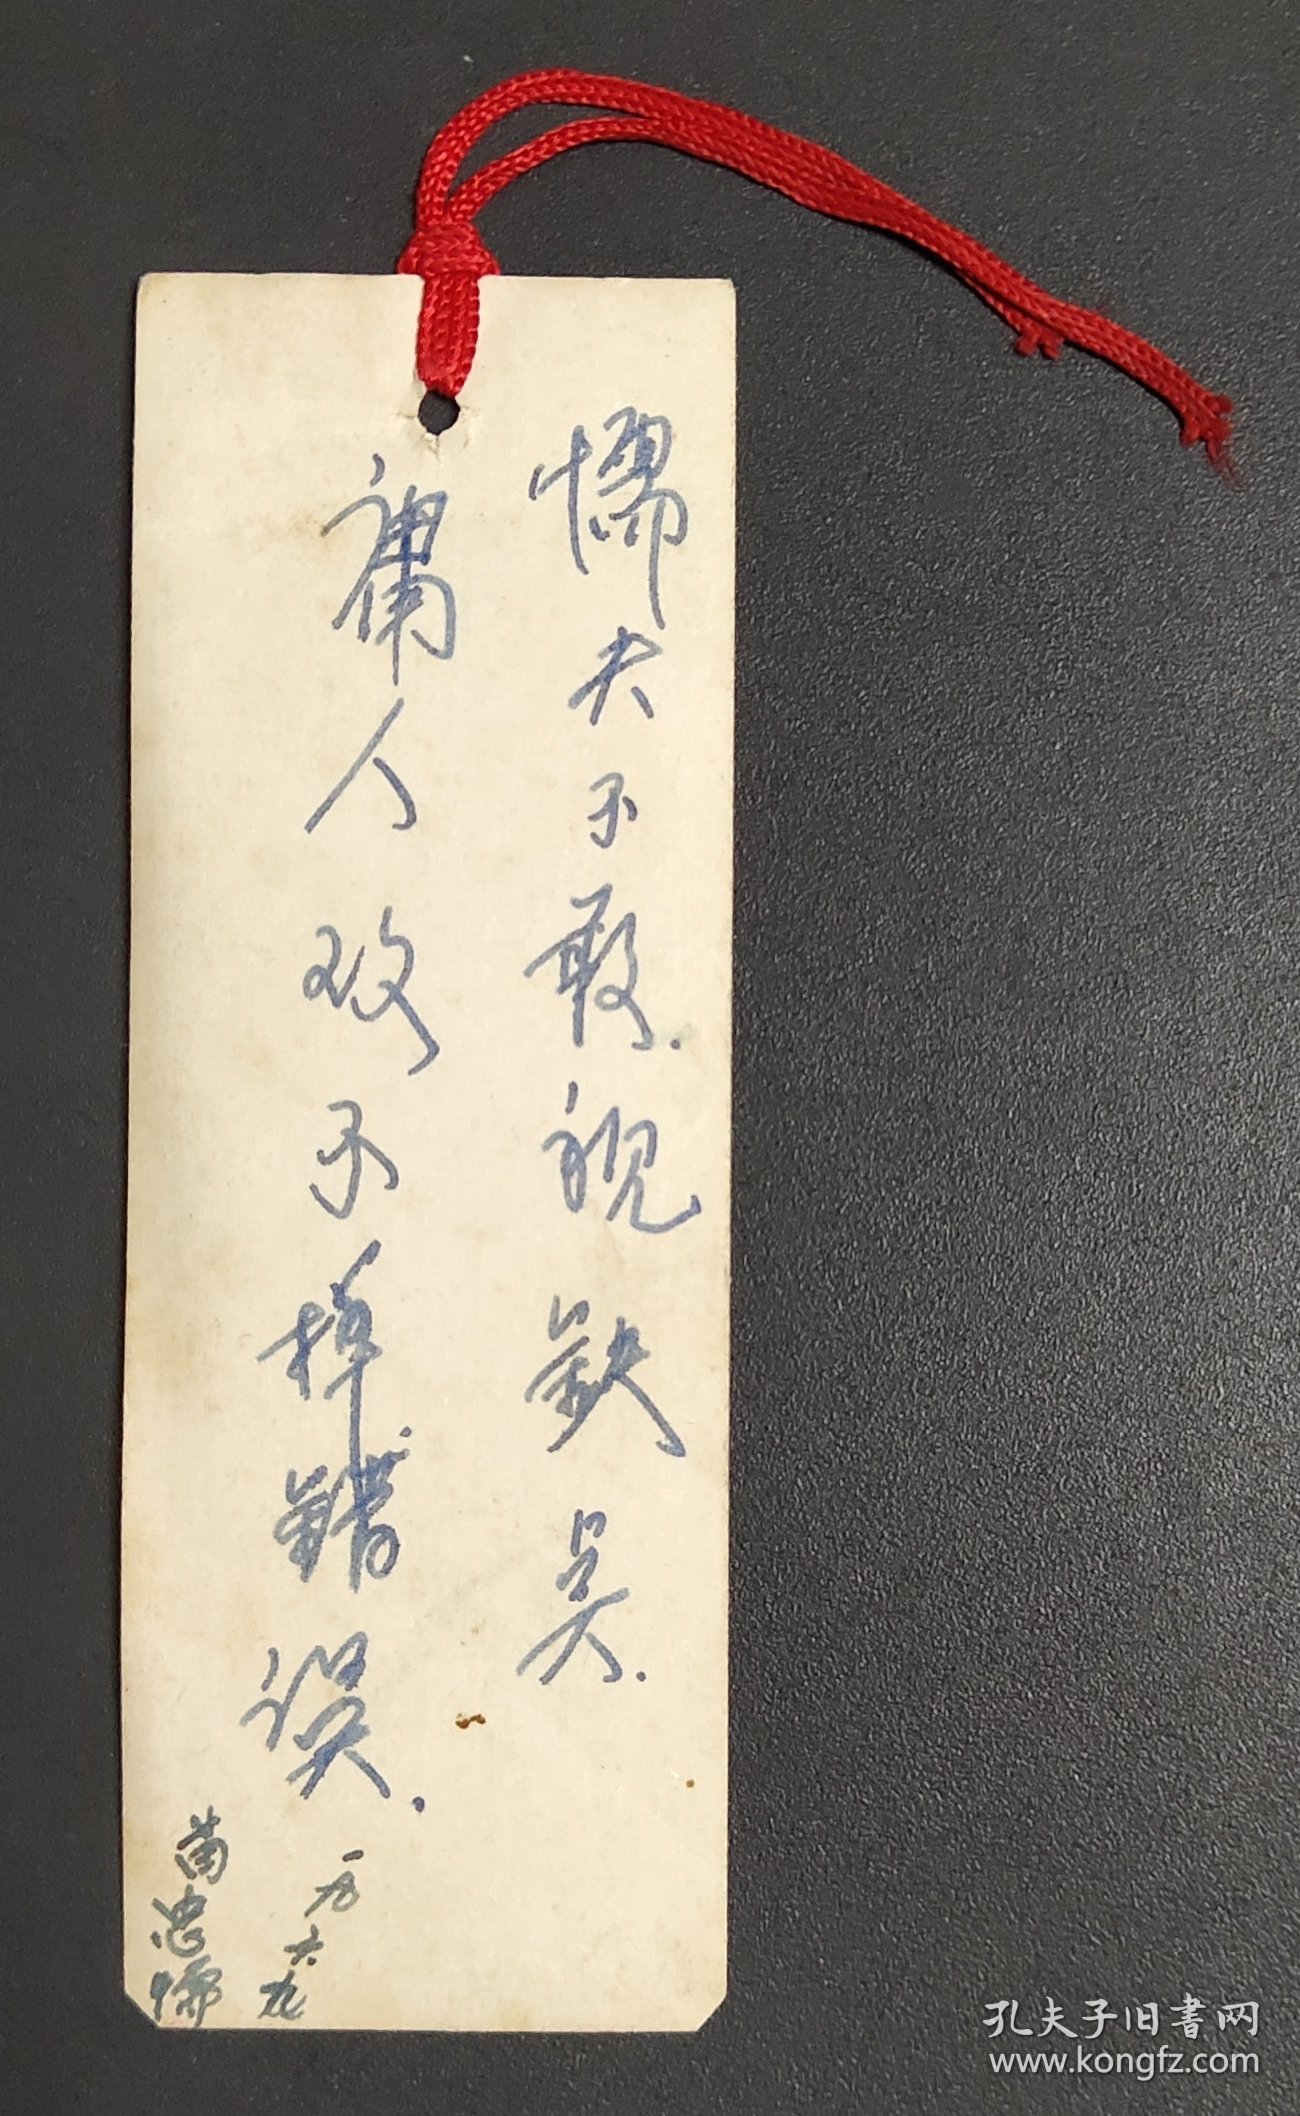 懦夫不敢视缺奌.
庸人改不掉错误.
一九六九
苗忠
孔夫子旧书网
www.kongfz.com